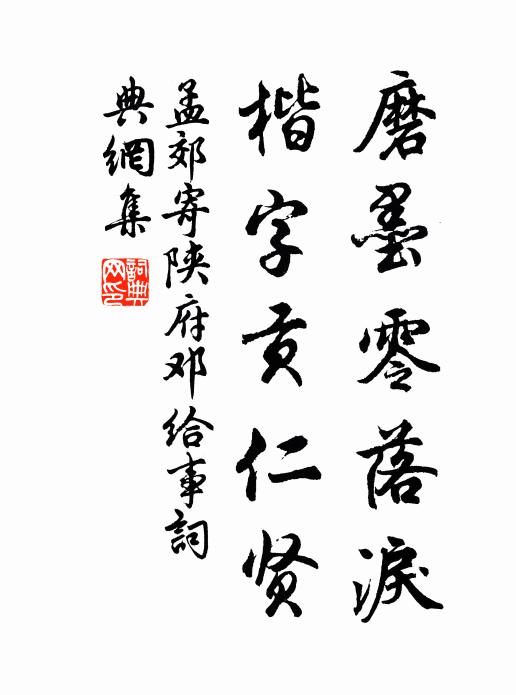 磨墨零落淚
楷字贡仁贤
孟郊寄陕府邓给事詞
典網集
詞典
网印